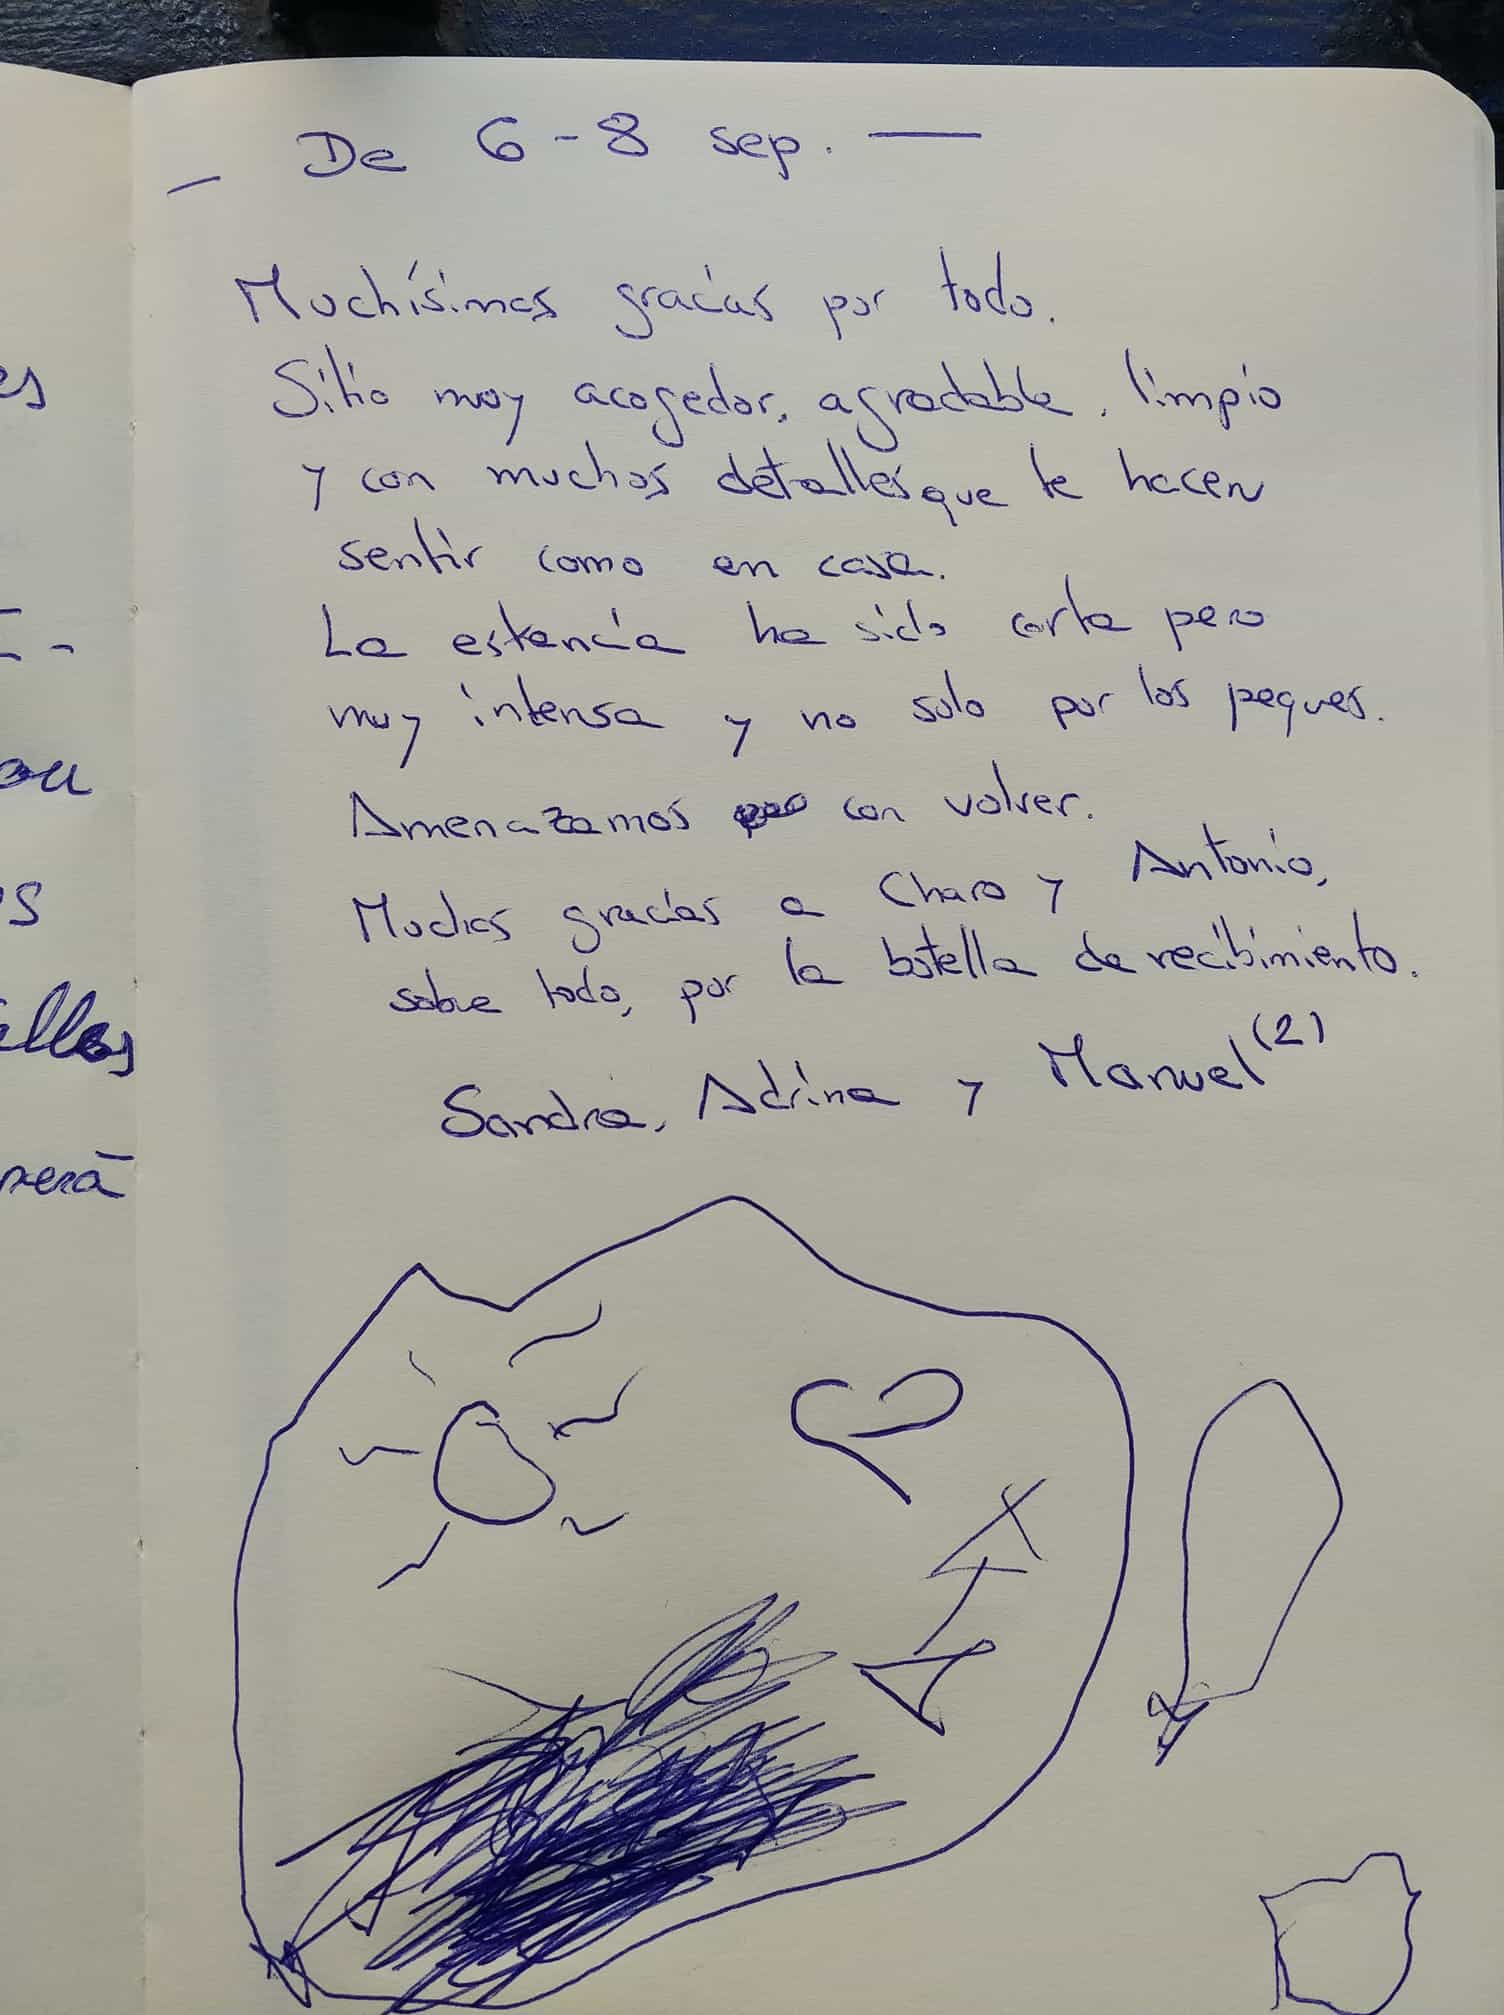 es
-
ou
s
alles
nerá
- De 6-8 sep. —
Muchísimas gracias por todo.
Sitio muy acogedor, agradable, limpio
y con muchos detalles que te hacen
sentir como en casa.
La estancia ha sido corta pero
muy intensa y no solo por los peques.
Amenazamos con volver.
Muchas gracias a Charo y Antonio,
sobre todo, por la botella de recibimiento.
Sandra, Adrina y Manuel (2)